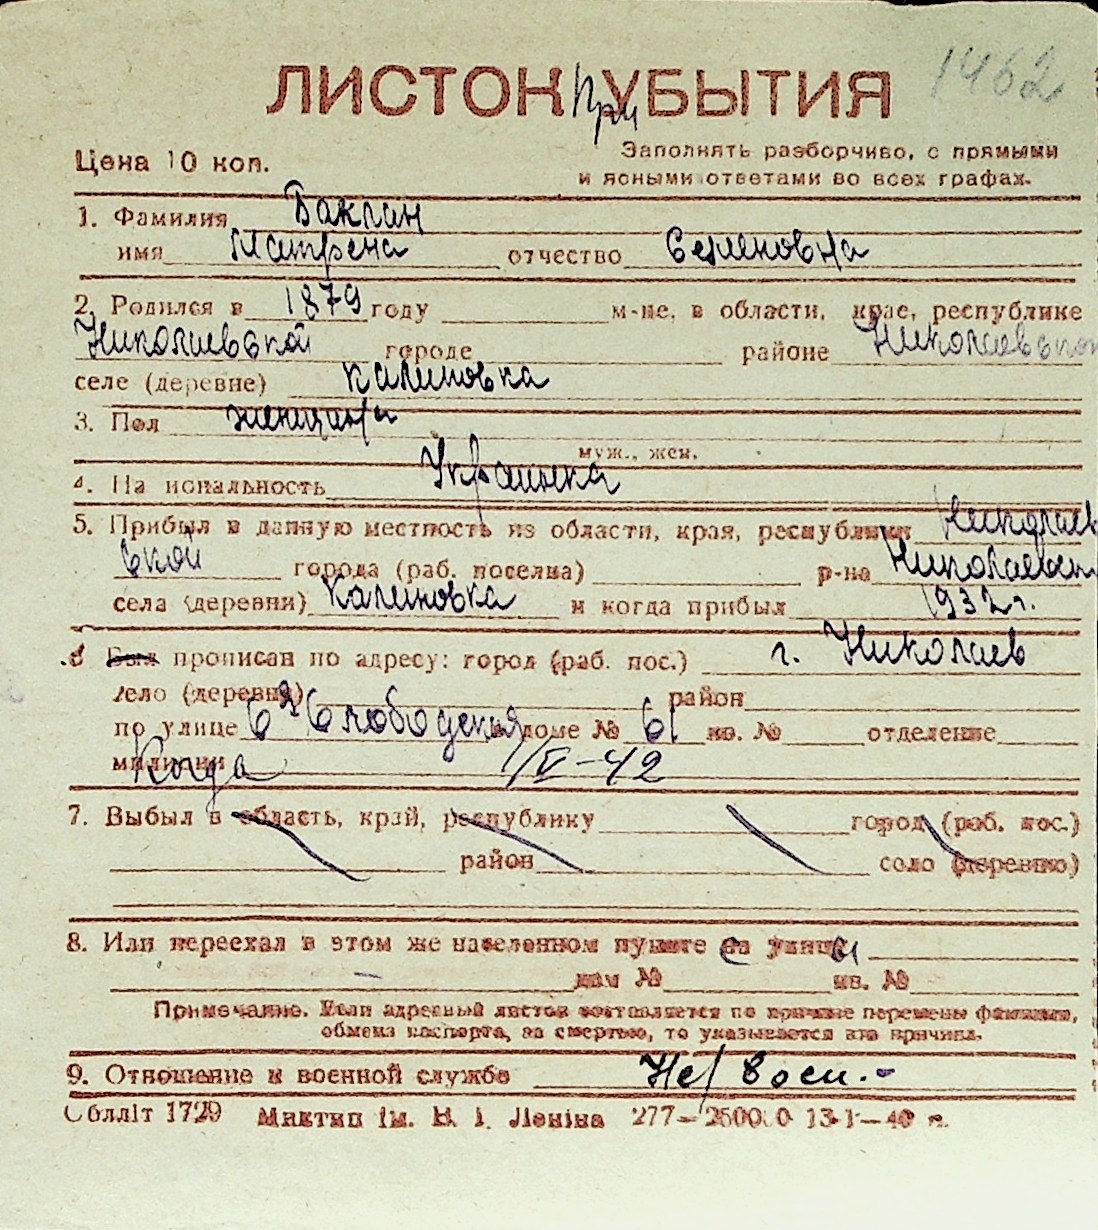 1462
ЛИСТОК при УБЫТИЯ
Цена 10 коп.
Заполнять разборчиво, с прямыми
и ясными ответами во всех графах.
1. Фамилия Баклан
имя Матрена отчество Семеновна
2. Родился в 1879 году м-це, в области, крае, республике
Николаевской городе районе Николаевском
селе (деревне) Калиновка
3. Пол женщина
муж., жен.
4. На иональность Украинка
5. Прибыл в данную местность из области, края, республики Николаев
ской города (раб. поселка) р-на Николаевск
села (деревни) Калиновка и когда прибыл 1932 г.
Был прописан по адресу: город (раб. пос.) г. Николаев
село (деревня) район
по улице 6я Слободская доме № 61 кв. № отделение
милиции Когда 1/V-42
7. Выбыл в область, край, республику город (раб. пос.)
район село (деревню)
8. Или переехал в этом же населенном пункте на улицу
дом № кв. №
Примечание. Если адресный листок составляется по причине перемены фамилии,
обмена паспорта, за смертью, то указывается эта причина.
9. Отношение к военной службе Не/воен.-
Облліт 1729 Миктип ім. В. І. Леніна 277— 250000 13-1—40 п.